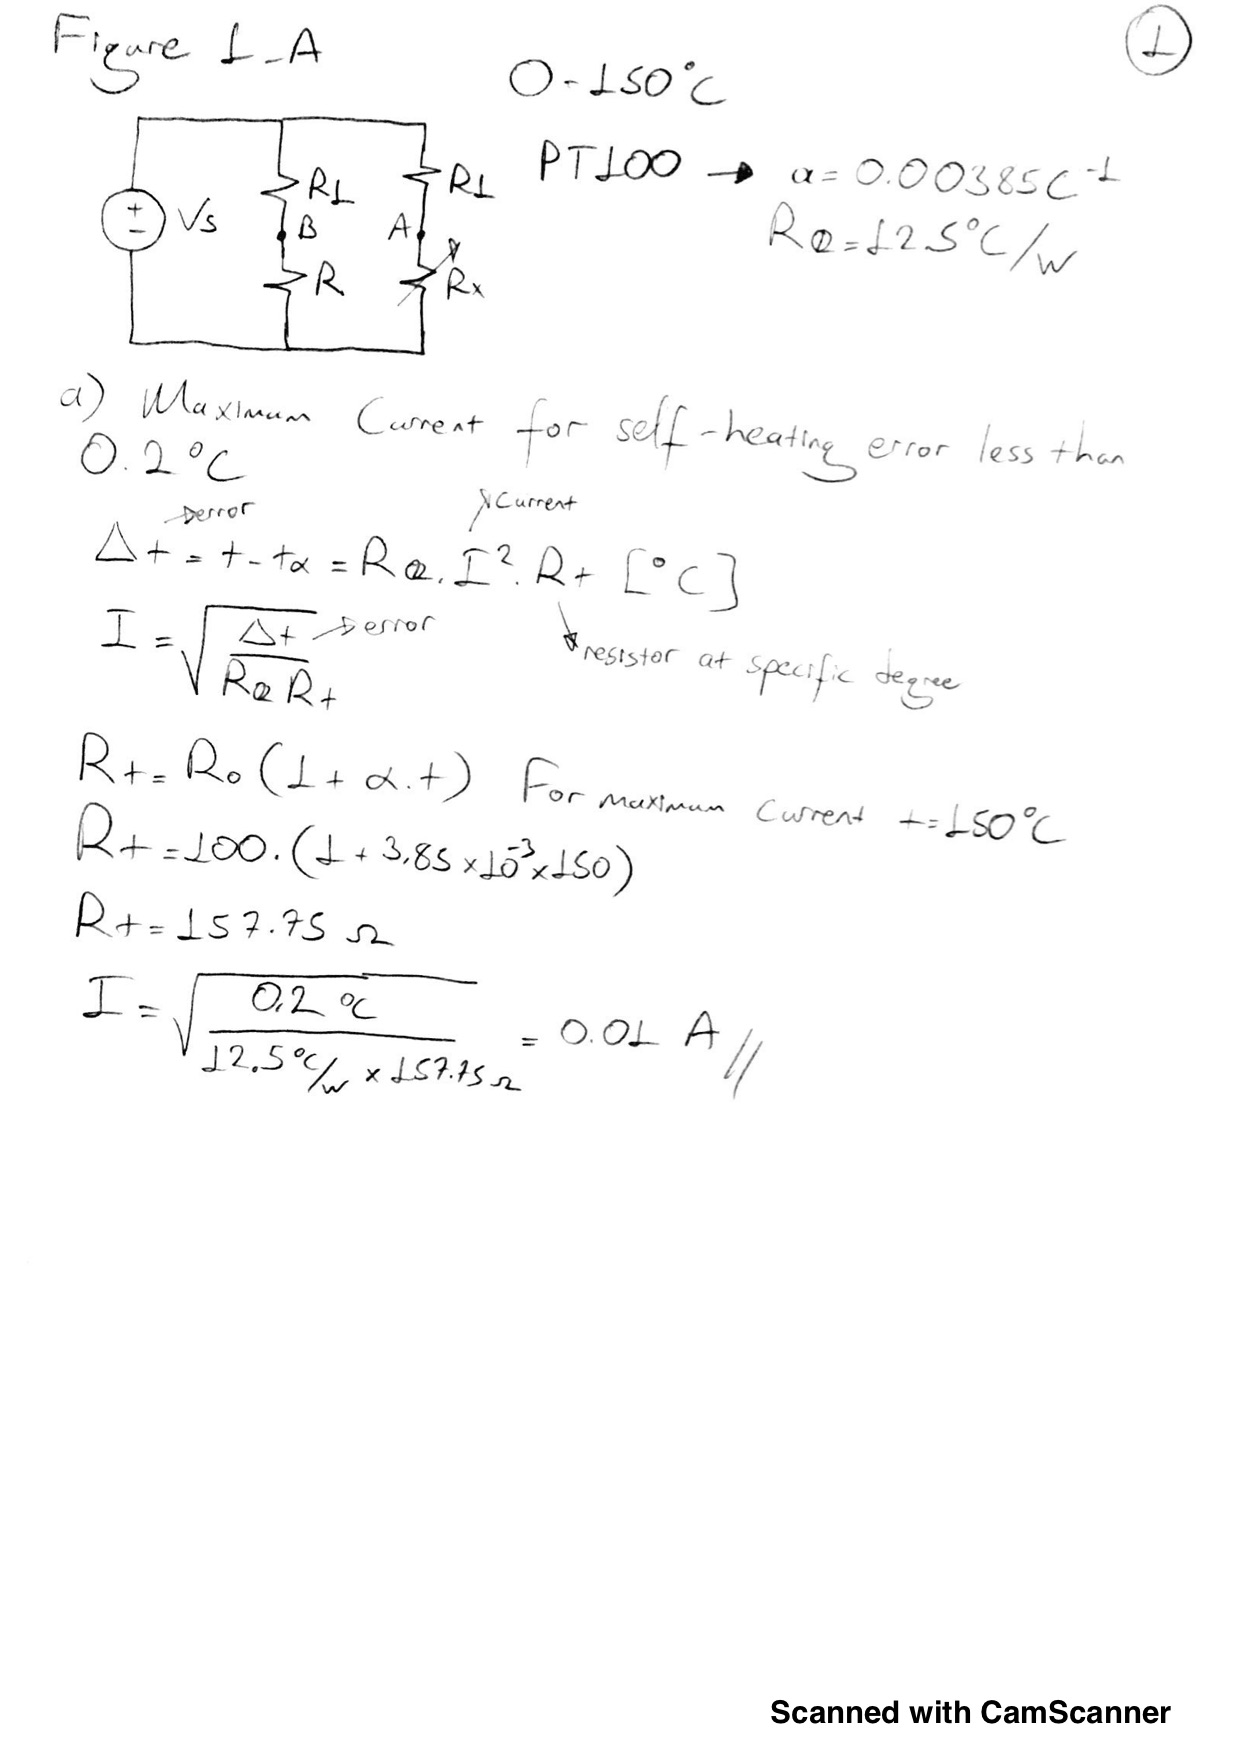 Figure 1-A
1
0-150°C
PT100 → α = 0.00385C⁻¹
RΘ = 12.5°C/W
+
-
Vs
R1
R1
B
A
R
Rx
a) Maximum Current for self-heating error less than
0.2°C
→error
↗Current
Δt = t - tα = RΘ. I². Rt [°C]
I = √(Δt / RΘ Rt) → error
resistor at specific degree
Rt = R0 (1 + α.t) For maximum Current t = 150°C
Rt = 100. (1 + 3.85 × 10⁻³ × 150)
Rt = 157.75 Ω
I = √(0.2 °C / 12.5°C/W × 157.75 Ω) = 0.01 A //
Scanned with CamScanner